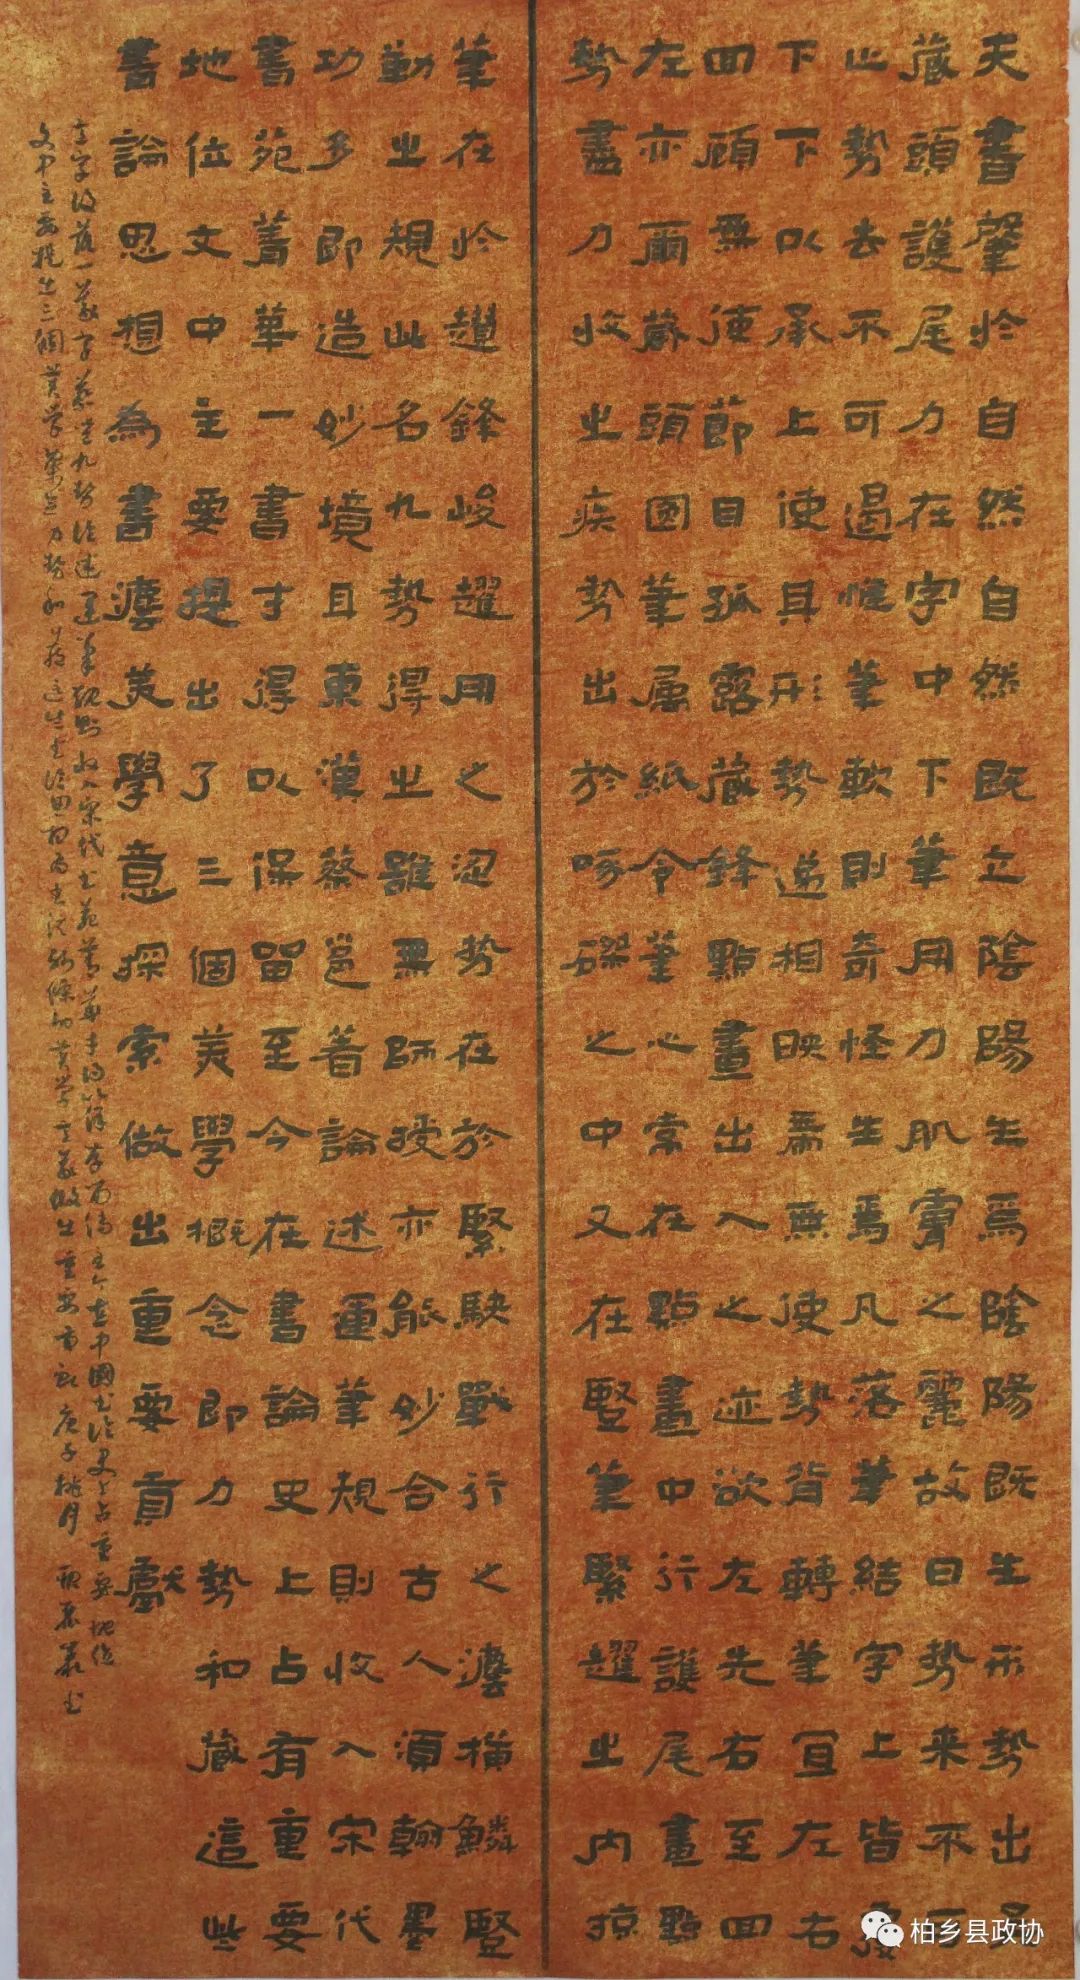 夫書肇於自然自然既立陰陽生焉陰陽既生形勢出矣
藏頭護尾力在字中下筆用力肌膚之麗故曰勢来不可
止勢去不可遏惟筆軟則奇怪生焉凡落筆結字上皆覆
下下以承上使其形勢遞相映帶無使勢背轉筆宜左右
回顧無使節目孤露藏鋒點畫出入之迹欲左先右至回
左亦爾藏頭圓筆属紙令筆心常在點畫中行護尾畫點
勢盡力收之疾勢出於啄磔之中又在竪筆緊趯之内掠
筆在於趲鋒峻趯用之澀勢在於緊駃戰行之灋橫鱗竪
勒之規此名九勢得之雖無師授亦能妙合古人須翰墨
功多即造妙境耳東漢蔡邕著論述運筆規則收入宋代
書苑菁華一書才得以保留至今在書論史上占有重要
地位文中主要提出了三個美學概念即力勢和藏這些
書論思想為書灋美學意探索做出重要貢獻
言字後落一藏字蔡邕九勢論述運筆規則收入宋代書苑菁華才得以保存而傳至今在中國書論史上占重要地位
文中主要提出三個美學概念力勢和藏這些書論思想為書法探索的美學意義做出重要貢獻庚子桃月